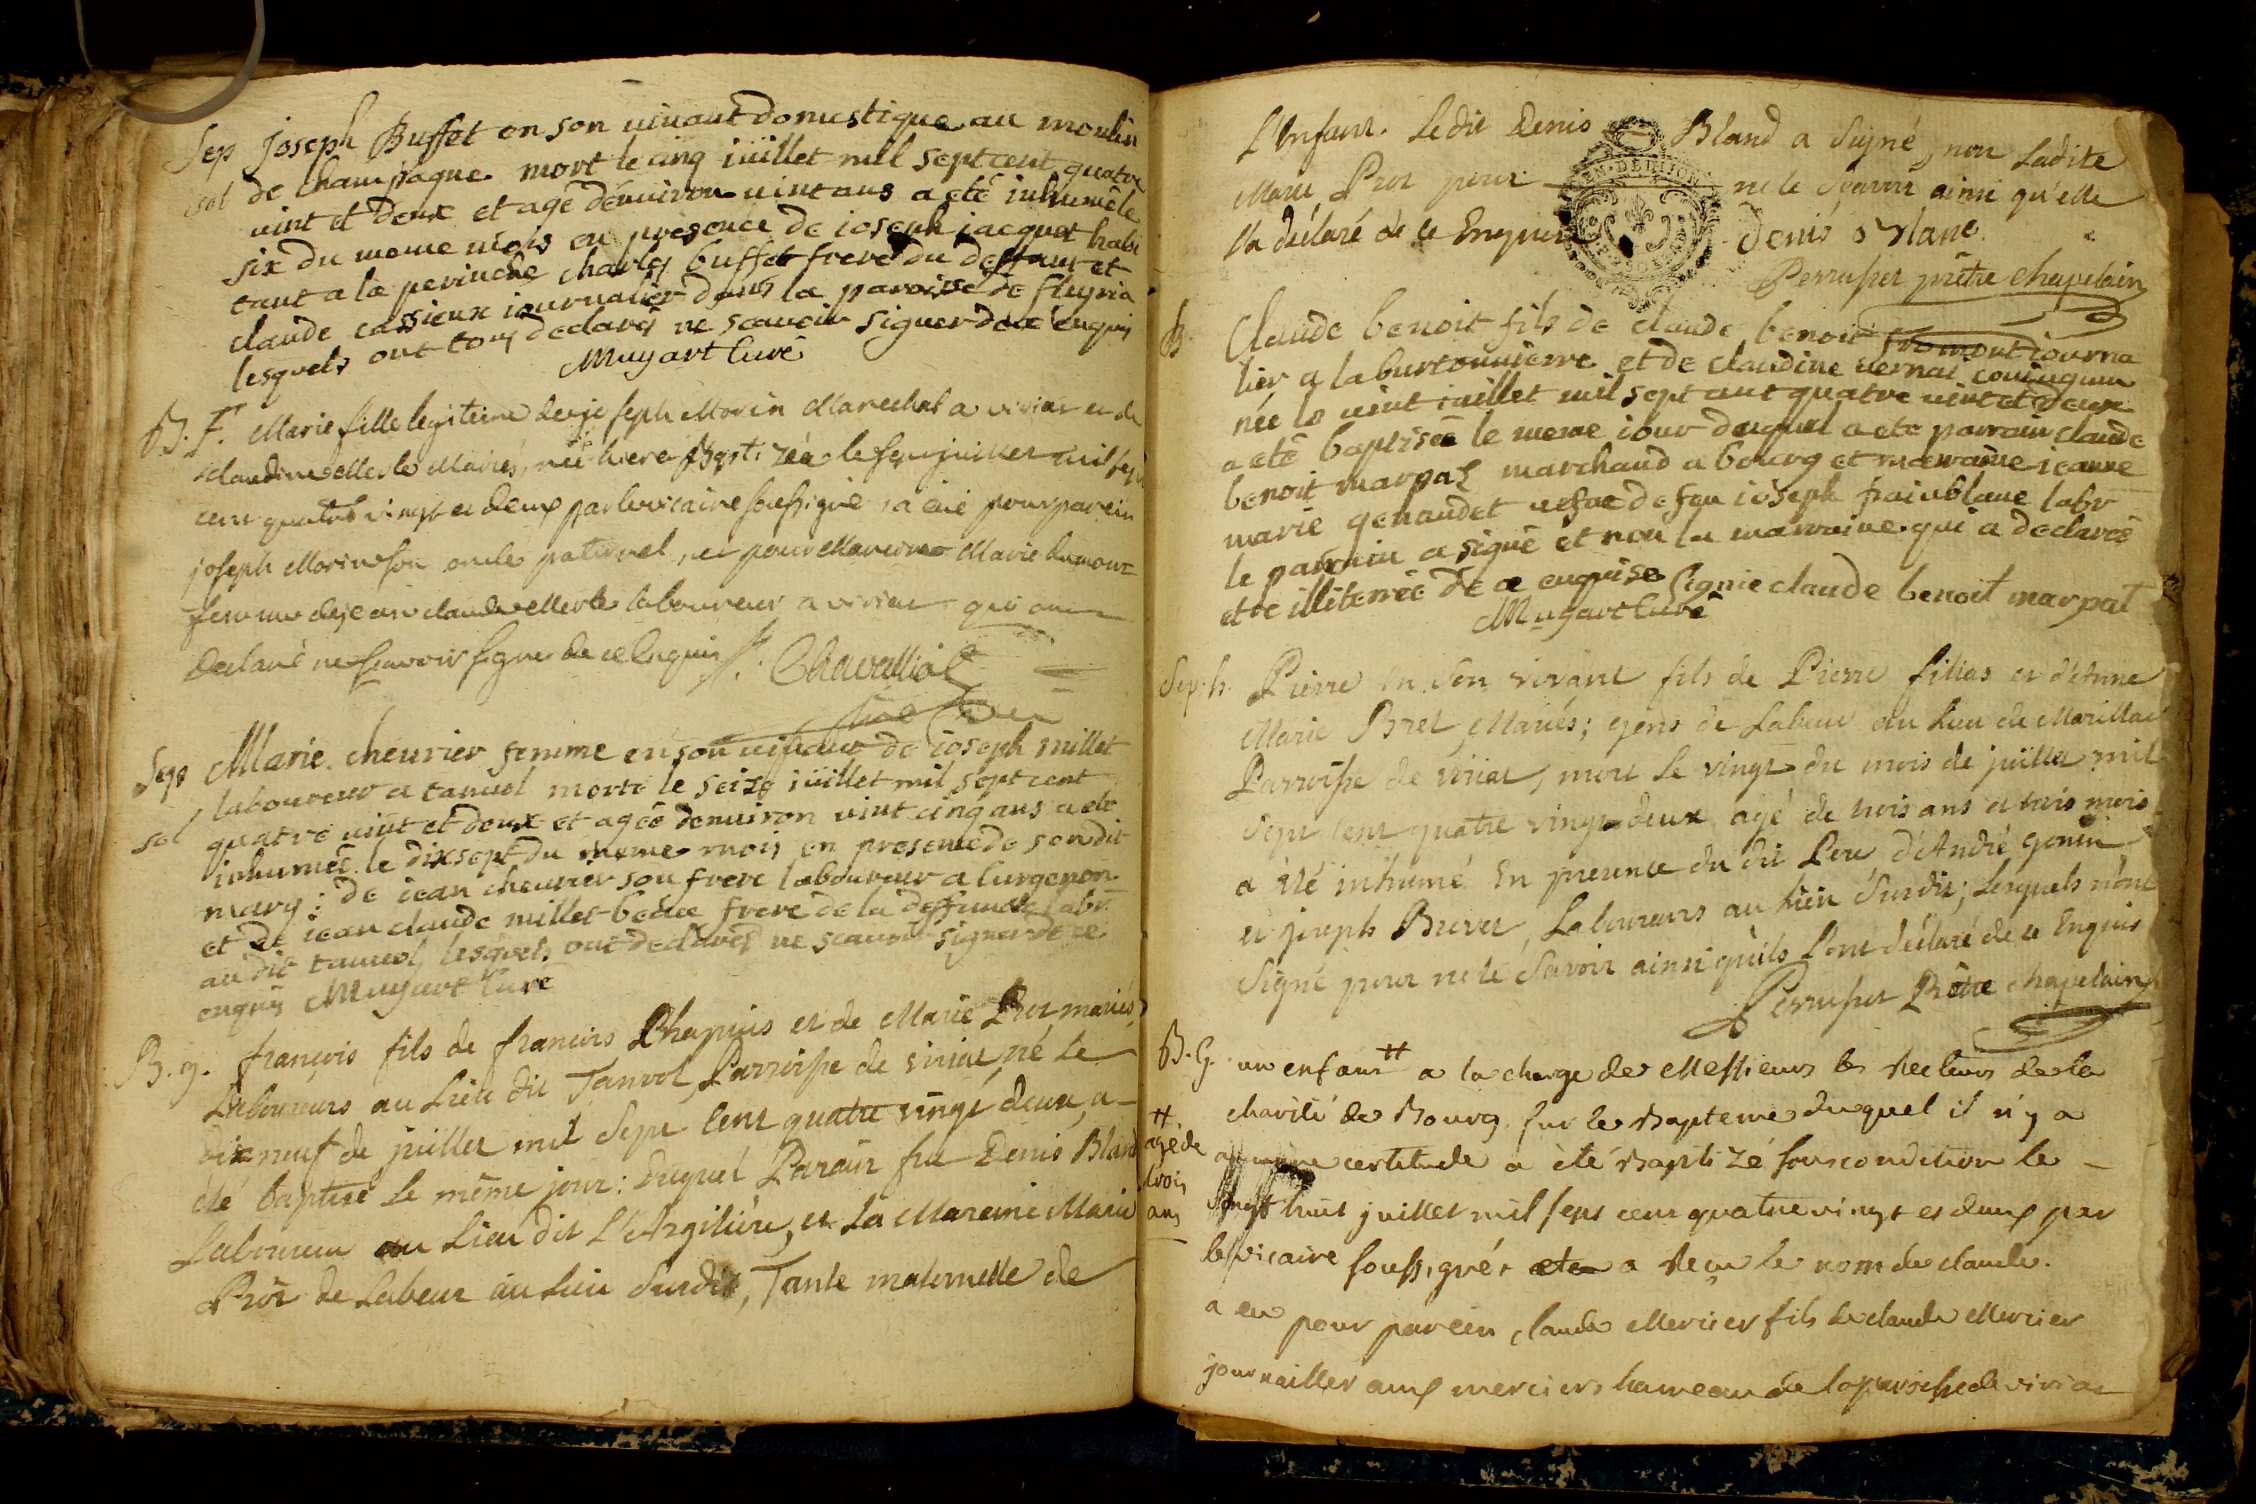 Sep Joseph Buffet en son vivant domestique au moulin
sol de champagne mort le cinq juillet mil sept cent quatre
vint et deux et agé denviron vint ans a eté inhumé le
six du meme mois en presence de joseph jacquet habi
tant a la pervinche charles buffet frere du deffunt et
claude cassieux journalier dans la paroisse de fleyria
lesquels ont tous declarés ne scavoir signer de ce enquis
Muyart Curé
B. F. Marie fille legiteime de joseph Morin Marechal a viriat et de
claudine Merle Mariés, née hiere Baptizéa le sept juillet mil sept
cent quatre vingt et deux par le vicaire soussigné, a eüe pour parein
joseph Morin son oncle paternel, et pour Mareine Marie dumont
femme de jean claude Merle laboureur a viriat qui ont
declaré ne scavoir signer de ce Enquis J. Chavalliot
vicaire
Sep Marie chevrier femme en son vivant de joseph millet
laboureur a tanvol morte le seize juillet mil sept cent
sol quatre vint et deux et agée denviron vint cinq ans a eté
inhumée le dixsept du meme mois en presence de son dit
mary; de jean chevrier son frere laboureur a curgenon
et de jean claude millet beau frere de la deffuncte labr
au dit tanvol lesquels ont declarés ne scavoir signer de ce
enquis Muyart Curé
B. g. françois fils de françois Chapuis et de Marie Prot mariés,
Laboureurs au Lieu dit Tanvol, Parroisse de viriat, né le
dix neuf de juillet mil Sept Cent quatre vingt deux, a
été baptisé le même jour: duquel Parain fut Denis Bland
Laboureur au Lieu dit L'Argiliere, et La Mareine Marie
Prot de Labeur au Lieu Susdit, Tante maternelle de
L'Enfant. Ledit Denis Bland a Signé, non Ladite
Marie Prot pour ne le Sçavoir ainsi qu'elle
l'a déclaré de ce Enquise Denis Blanc
Perruset prêtre chapelain
B. Claude benoit fils de claude benoit journa
lier a la burtonnierre et de claudine vernai conjugum
née le vint juillet mil sept cent quatre vint et deux
a eté baptisée le meme jour duquel a ete parrain claude
benoit marpat marchand a bourg et marraine jeanne
marie genaudet vefve de feu joseph painblanc labr
le parrain a signé et non la marraine qui a declarée
etre illiterrée de ce enquise Signie claude benoit marpat
Muyart Curé
Sep. h. Pierre en Son vivant fils de Pierre fillias et d'Anne
Marie Bret, Mariés; gens de Labeur au Lieu de Marillac
Parroisse de viriat, mort Le vingt du mois de juillet mil
Sept Cent quatre vingt deux agé de trois ans et trois mois
a été inhumé En presence du dit Pere d'André gonin
et joseph Brevet, Laboureurs au Lieu Susdit; Lesquels n'ont
Signé pour ne le Savoir ainsi qu'ils l'ont déclaré de ce Enquis
Perruset Prêtre chapelain
B. G. un enfant # a la charge de Messieurs les Recteurs de la
charité de Bourg, sur le Bapteme duquel il n'y a
# agé de trois ans
aucune certitude a été Baptizé sous condition le
vingt huit juillet mil sept cent quatre vingt et deux par
le vicaire soussigné, a reçu le nom de claude.
a eu pour parein, claude Mercier fils de claude Mercier
journaillier aux merciers hameau de la paroisse de viriat